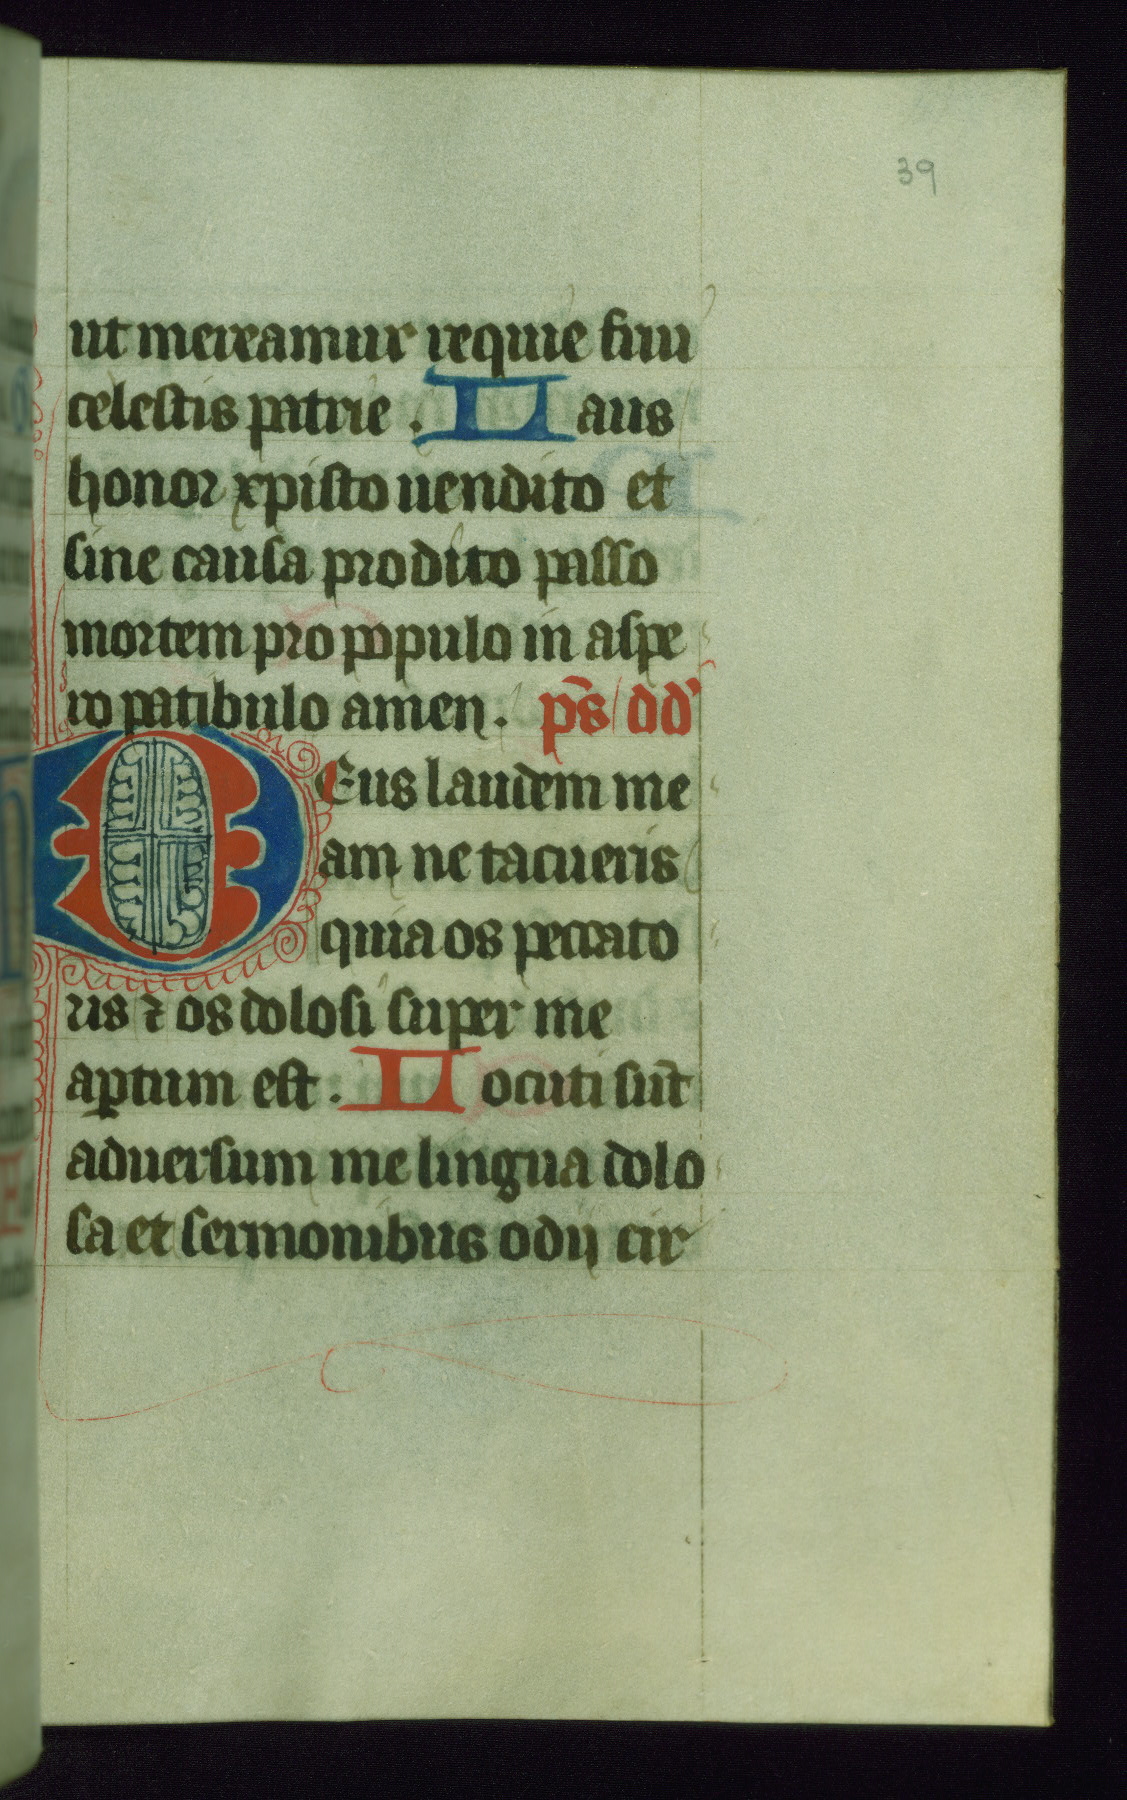 39
ut mereamur requie frui
celestis patrie . Laus
honor xpisto uendito et
sine causa prodito passo
mortem pro populo in aspe
ro patibulo amen . ps̄ dd'
DEus laudem me
am ne tacueris
quia os peccato
ris ⁊ os dolosi super me
aꝑtum est . Locuti sūt
aduersum me lingua dolo
sa et sermonibus odij cir